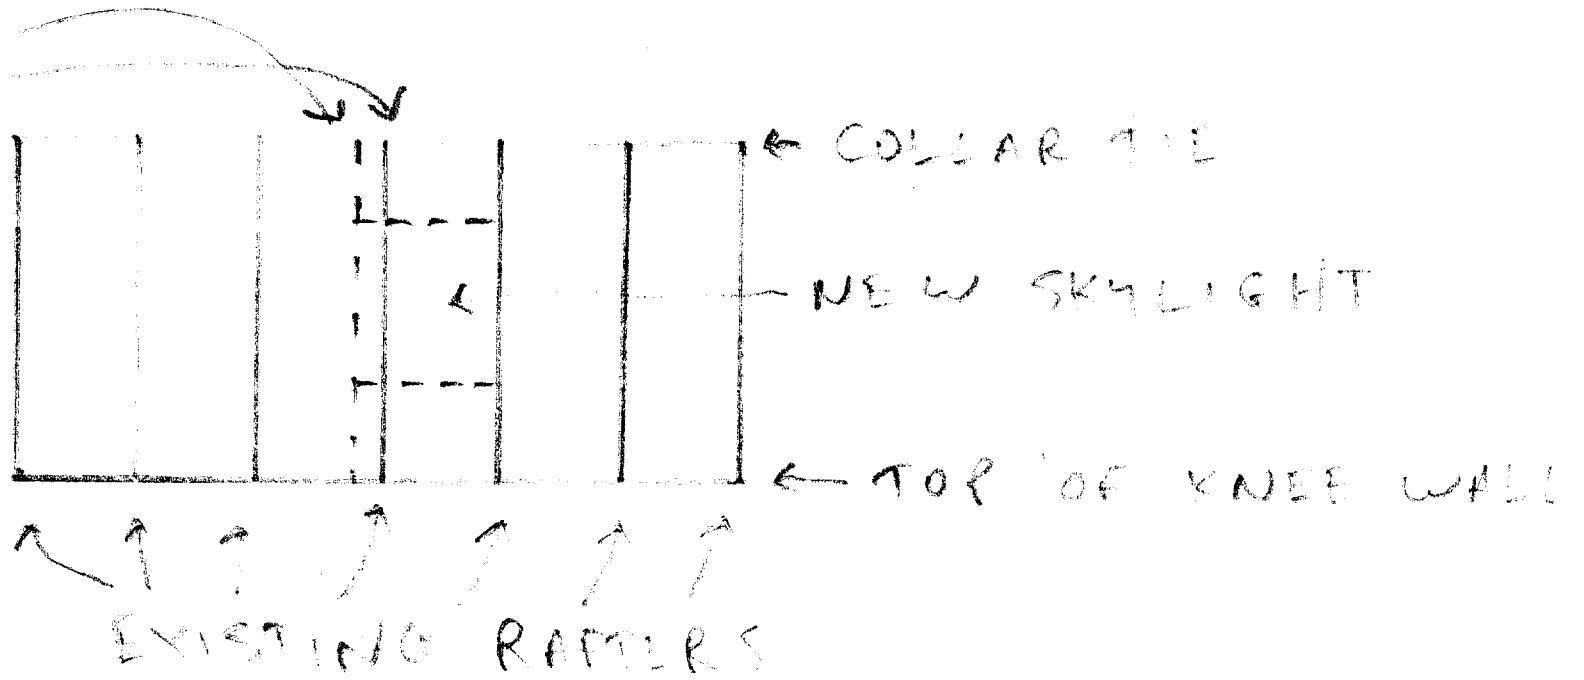 COLLAR TIE
NEW SKYLIGHT
TOP OF KNEE WALL
EXISTING RAFTERS